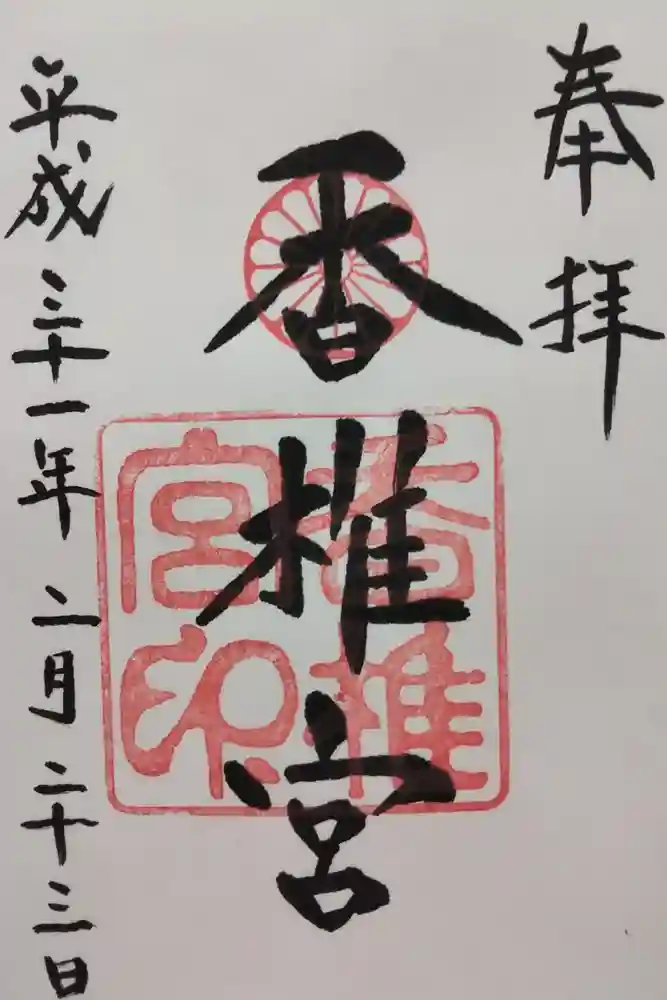 奉拝
香椎宮
香椎宮印
平成三十一年二月二十三日